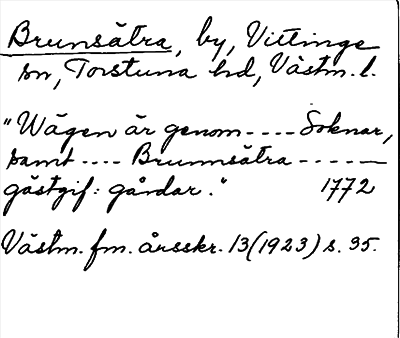 Brunsätra, by, Vittinge
sn, Torstuna hd, Västm. l.
"Wägen är genom ---- Soknar,
samt ---- Brunnsätra -----
gästgif: gårdar." 1772
Västm. fm. årsskr. 13 (1923) s. 35.